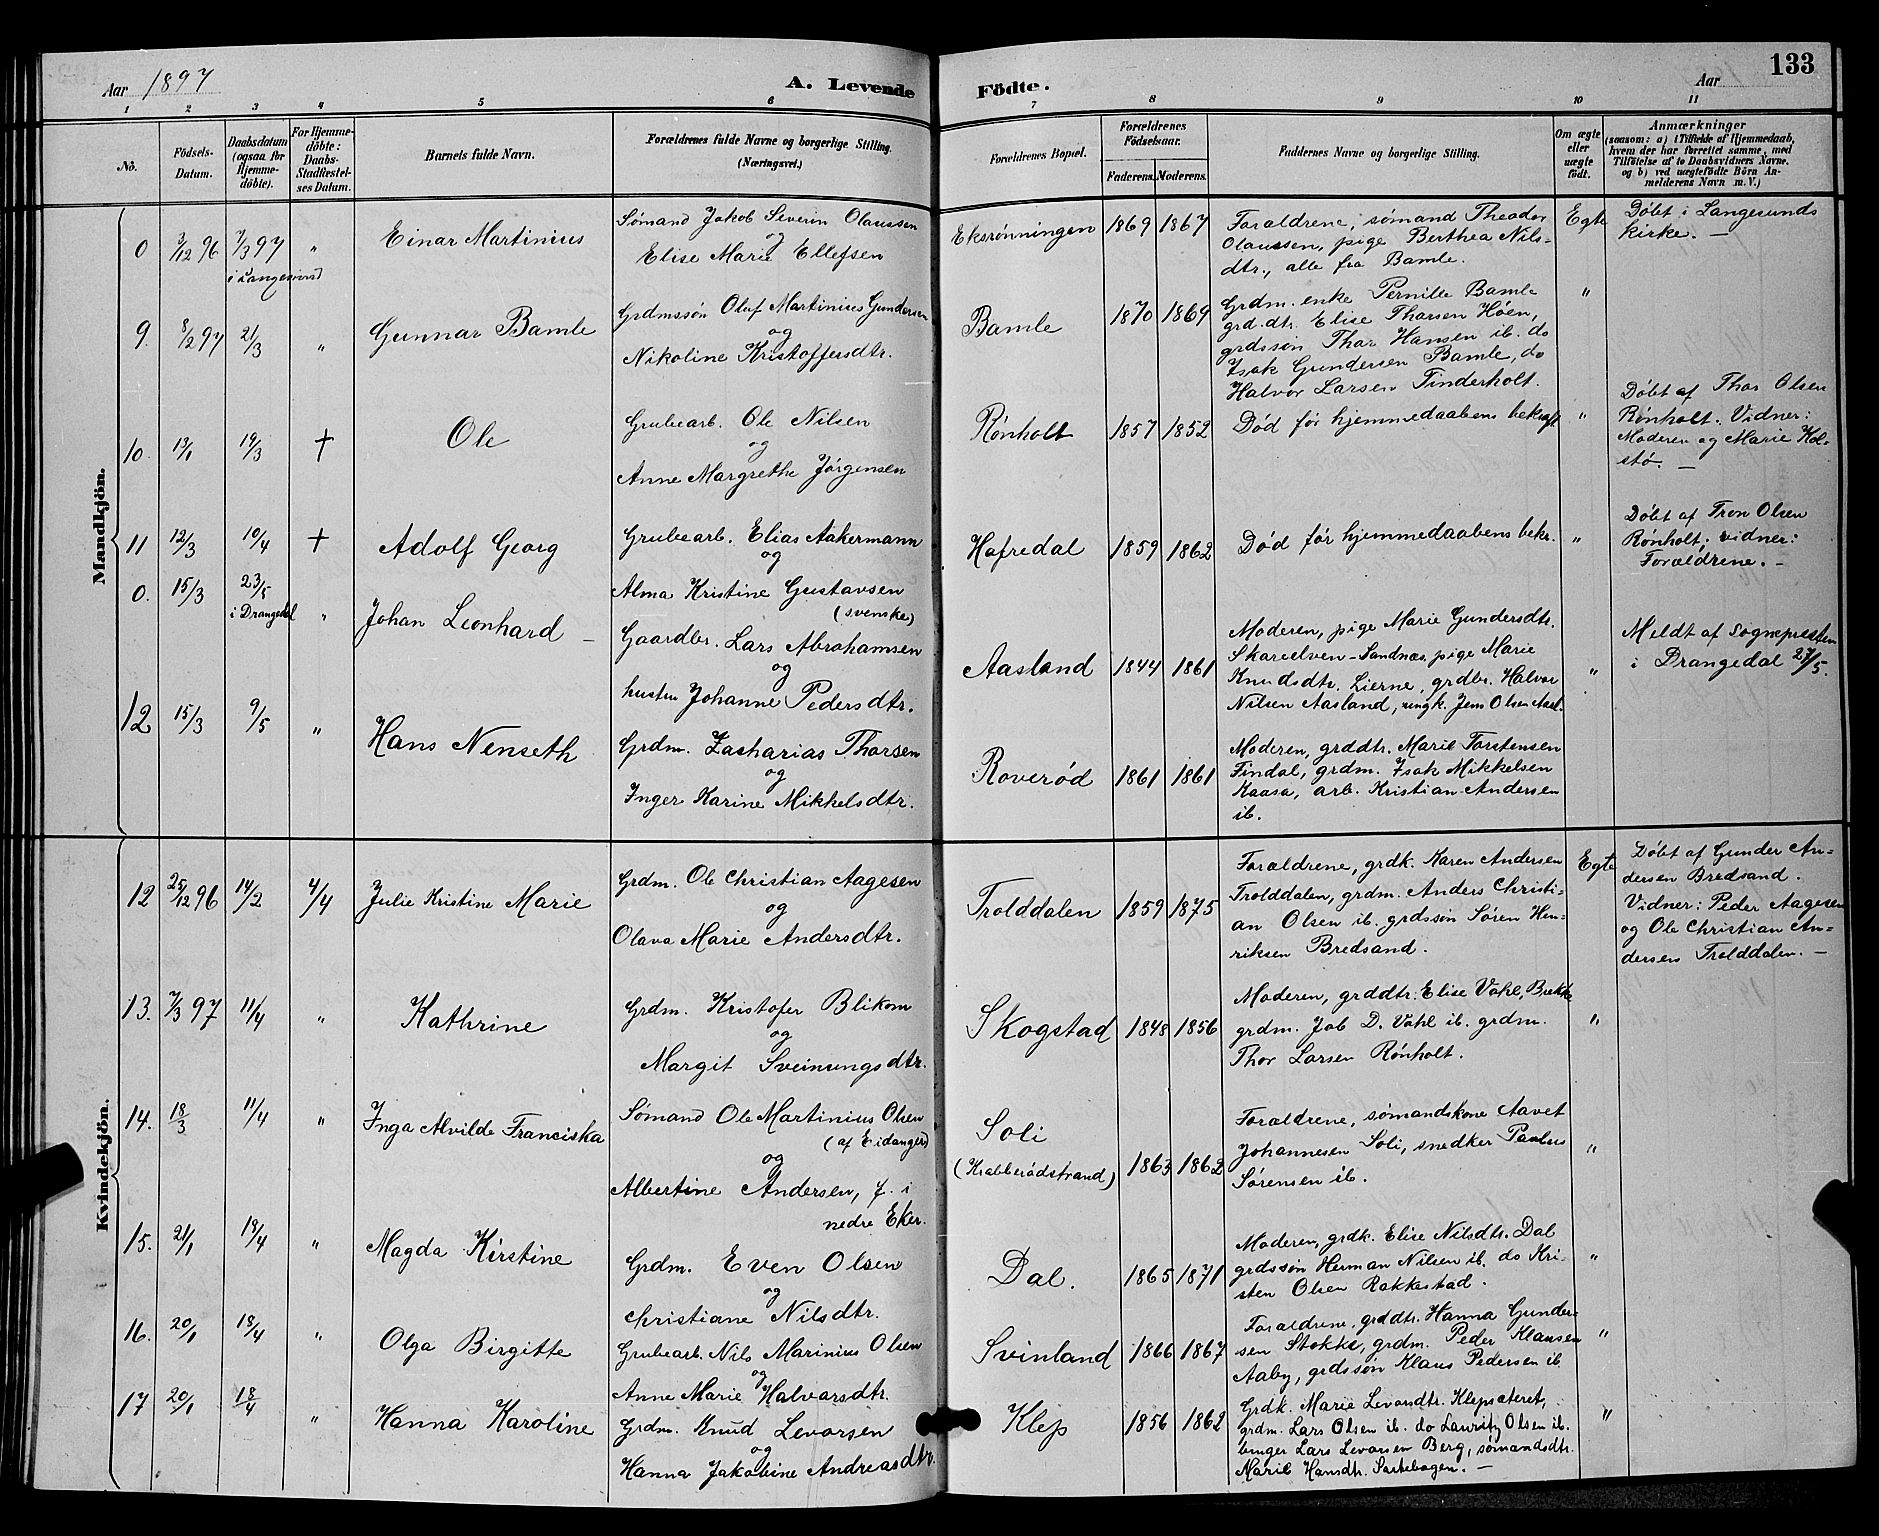 133
Aar 1897 A. Levende Födte. Aar
1 2 3 4 5 6 7 8 9 10 11
No.
Födsels-Datum.
Daabsdatum (ogsaa for Hjemme-döbte).
For Hjemme-döbte: Daabs-Stadfæstel-ses Datum.
Barnets fulde Navn.
Forældrenes fulde Navne og borgerlige Stilling.
(Næringsvei.)
Forældrenes Bopæl.
Forældrenes Födselsaar.
Faderens. Moderens.
Faddernes Navne og borgerlige Stilling.
Om ægte eller uægte født.
Anmærkninger
(saasom: a) i Tilfælde af Hjemmedaab,
hvem der har forrettet samme, med
Tilföielse af to Daabsvidners Navne,
og b) ved uægtefödte Börn An-
melderens Navn m. V.)
Mandkjön.
0 3/12 96 7/3 97 i Langesund "
Einar Martinius
Sømand Jakob Severin Olaussen
og
Elise Marie Ellefsen
Eksrønningen 1869 1867
Forældrene, sømand Theodor
Olaussen, pige Berthea Nils-
dtr., alle fra Bamle.
Egte
Døbt i Langesunds
kirke. —
9. 8/2 97 21/3 "
Gunnar Bamle
Grdmssøn Oluf Martinius Gundersen
og
Nikoline Kristoffersdtr.
Bamle 1870 1869
Grdm. enke Pernille Bamle
grd.dtr. Elise Tharsen Høen,
grdssøn Thor Hansen ib. do
Isak Gundersen Bamle, do
Halvor Larsen Tinderholt.
"
10. 13/1 19/3 †
Ole
Grubearb. Ole Nilsen
og
Anne Margrethe Jørgensen
Rønholt 1857 1852
Død før hjemmedaabens bekræft
"
Døbt af Thor Olsen
Rønholt. Vidner:
Moderen og Marie Kol-
stø. —
11 12/3 10/4 †
Adolf Georg
Grubearb. Elias Aakermann
og
Alma Kristine Gustavsen
(svenske)
Hafredal 1859 1862
Død før hjemmedaabens bekr.
"
Døbt af Tron Olsen
Rønholt. vidner:
Forældrene. —
0. 15/3 23/5 i Drangedal "
Johan Leonhard —
Gaardbr. Lars Abrahamsen
og
hustru Johanne Pedersdtr.
Aasland 1844 1861
Moderen, pige Marie Gundersdtr.
Skareelven-Sandnæs, pige Marie
Knudsdtr. Lierne, grdbr. Halvor
Nilsen Aasland, ungk. Jens Olsen Aasl.
"
Meldt af sognepresten
i Drangedal 27/5.
12 15/3 9/5 "
Hans Nenseth
Grdm. Zacharias Tharsen
og
Inger Karine Mikkelsdtr.
Roverød 1861 1861
Moderen, grddtr. Marie Torstensen
Findal, grdm. Isak Mikkelsen
Kaasa, arb. Kristian Andersen
ib.
Kvindekjön.
12 25/12 96 14/2 4/4
Julie Kristine Marie
Grdm. Ole Christian Aagesen
og
Olava Marie Andersdtr.
Trolddalen 1859 1875
Forældrene, grdk. Karen Andersen
Trolddalen, grdm. Anders Christi-
an Olsen ib. grdssøn Søren Hen-
riksen Bredsand.
Egte
Døbt af Gunder An-
dersen Bredsand.
Vidner: Peder Aagesen
og Ole Christian An-
dersens Trolddalen. —
13. 7/3 97 11/4 "
Kathrine
Grdm. Kristofer Blikom
og
Margit Sveinungsdtr.
Skogstad 1848 1856
Moderen, grddtr. Elise Vahl, Brekke
grdm. Job D. Vahl ib. grdm.
Thor Larsen Rønholt.
"
14. 18/3 11/4 "
Inga Alvilde Franciska
Sømand Ole Martinius Olsen
(af Eidanger)
og
Albertine Andersen, f. i
nedre Eker.
Soli
(Krabberødstrand) 1863 1862
Forældrene, sømandskone Aavet
Johannesen Soli, snedker Paulus
Sørensen ib.
"
15. 21/1 19/4 "
Magda Kirstine
Grdm. Even Olsen
og
Christiane Nilsdtr.
Dal. 1865 1871
Moderen, grdk. Elise Nilsdtr. Dal
grdssøn Herman Nilsen ib. do Kri-
sten Olsen Rakkestad.
"
16. 20/1 18/4 "
Olga Birgitte
Grubearb. Nils Marinius Olsen
og
Anne Marie Halvorsdtr.
Svinland 1866 1867
Forældrene, grddtr. Hanna Gunder-
sen Stokke, grdm. Peder Klausen
Aaby, grdssøn Klaus Pedersen ib.
"
17 20/1 18/4 "
Hanna Karoline
Grdm. Knud Levorsen
og
Hanna Jakobine Andreasdtr.
Klep 1856 1862
Grdk. Marie Levorsdtr. Klepsæteret,
grdm. Lars Olsen ib. do Lauritz Olsen ib.
Lars Levorsen Berg, sømandsdtr.
Marie Hansdtr. —
"